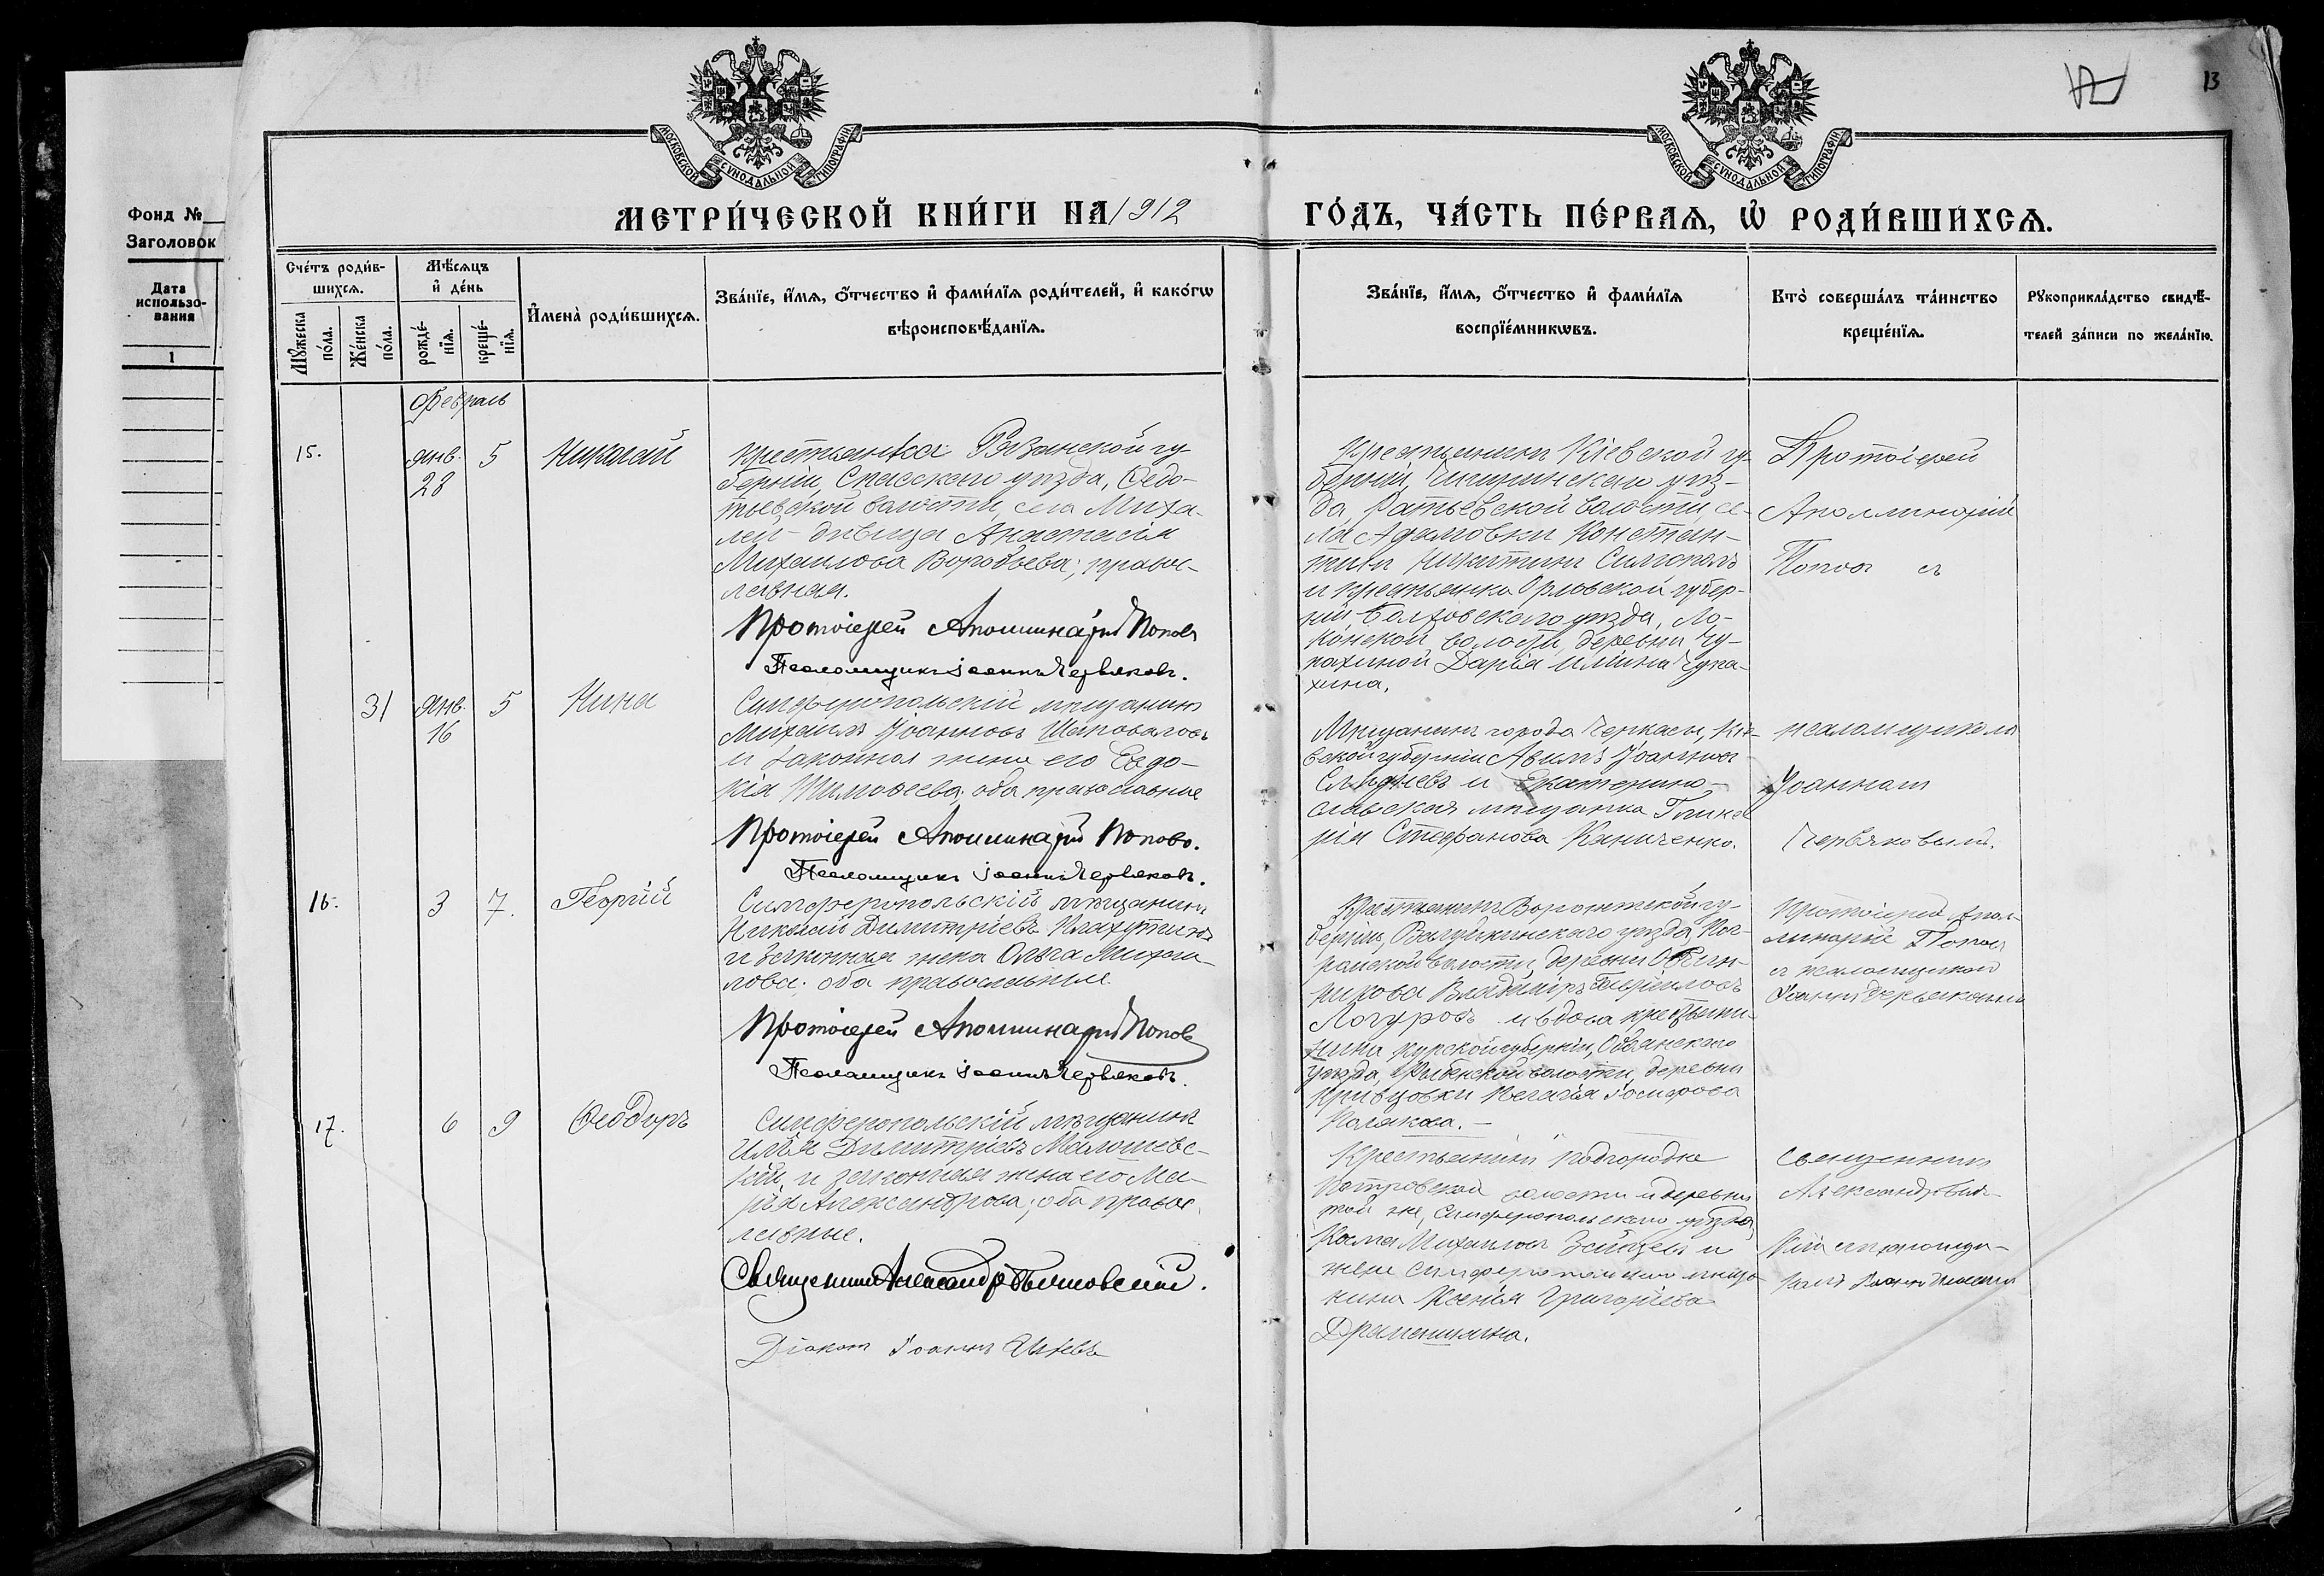 13
Фонд №
Заголовок
Дата
использо-
вания
1
МОСКОВСКОЙ СУНОДАЛЬНОЙ ТИПОГРАФІИ
МОСКОВСКОЙ СУНОДАЛЬНОЙ ТИПОГРАФІИ
МЕТРИ́ЧЕСКОЙ КНИ́ГИ НА 1912
ГО́ДЪ, ЧА́СТЬ ПЕ́РВАѦ, Ѡ҆ РОДИ́ВШИХСѦ.
Сче́тъ роди́в-
шихсѧ.
Мꙋ́жеска
по́ла.
Же́нска
по́ла.
Мѣ́сѧцъ
и҆ де́нь
рожде́-
нїѧ.
креще́-
нїѧ.
И҆мена̀ роди́вшихсѧ.
Зва́нїе, и҆́мѧ, ѻ҆́тчество и҆ фами́лїѧ роди́телей, и҆ како́гѡ
вѣроисповѣ́данїѧ.
Зва́нїе, и҆́мѧ, ѻ҆́тчество и҆ фами́лїѧ
воспрїе́мникѡвъ.
Кто̀ соверша́лъ та́инство
креще́нїѧ.
Рꙋкоприкла́дство свидѣ́-
телей за́писи по жела́нїю.
Февраль
15.
янв.
28
5
Николай
Крестьянка Рязанской гу-
берніи, Спасскаго уѣзда, Ѳедо-
тьевской волости, села Миха-
лей - дѣвица Анастасія
Михаилова Воробьева; правос-
лавная.
Протоіерей Аполлинарій Поповъ
Псаломщикъ Іоаннъ Червяковъ.
Крестьянинъ Кіевской гу-
берніи, Чигиринскаго уѣз-
да, волости, се-
ла Адамовки Констан-
тинъ Никитинъ
и крестьянка Орловской губер-
ніи, Болховского уѣзда, Ло-
нской волости, деревни Чу-
пахиной Дарія Ильина Чупа-
хина.
Протоіерей
Аполлинарій
Поповъ съ
31
янв.
16
5
Нина
Симферопольскій мѣщанинъ
Михаилъ Іоанновъ Шаповаловъ
и законная жена его Евдо-
кія Тимоѳеева; оба православные
Протоіерей Аполлинарій Поповъ.
Псаломщикъ Іоаннъ Червяковъ.
Мѣщанинъ города Черкасы, Кіе-
вской губерніи Іоанновъ
и Екатерино-
славская мѣщанка Глике-
рія Стефанова Каниченко.
псаломщикомъ
Іоанномъ
Червяковымъ.
16.
3
7.
Георгій
Симферопольскій мѣщанинъ
Николай Димитріевъ
и законная жена Ольга Михаи-
лова; оба православные.
Протоіерей Аполлинарій Поповъ
Псаломщикъ Іоаннъ Червяковъ.
Крестьянинъ Воронежской гу-
берніи, уѣзда,
волости, деревни
Владиміръ
и вдова крестьяни-
нина Курской губерніи, Обоянскаго
уѣзда, Рыбинской волости, деревни
Кривцовки Пелагія Іосифова
Полякова. -
Протоіерей Апол-
линарій Поповъ
съ псаломщикомъ
Іоанномъ Червяковымъ
17.
6
9
Ѳеодоръ
Симферопольскій мѣщанинъ
Илья Димитріевъ Малашевс-
кій и законная жена его Ма-
рія Александрова; оба правос-
лавные.
Священникъ Александръ
Діаконъ Іоаннъ
Крестьянинъ Подгородне
Петровской волости и деревни
той же, Симферопольскаго уѣзда
Косма Михаиловъ Зайцевъ и
жена симферопольскаго мѣща-
нина Ксенія Григоріева
Священникъ
Александръ